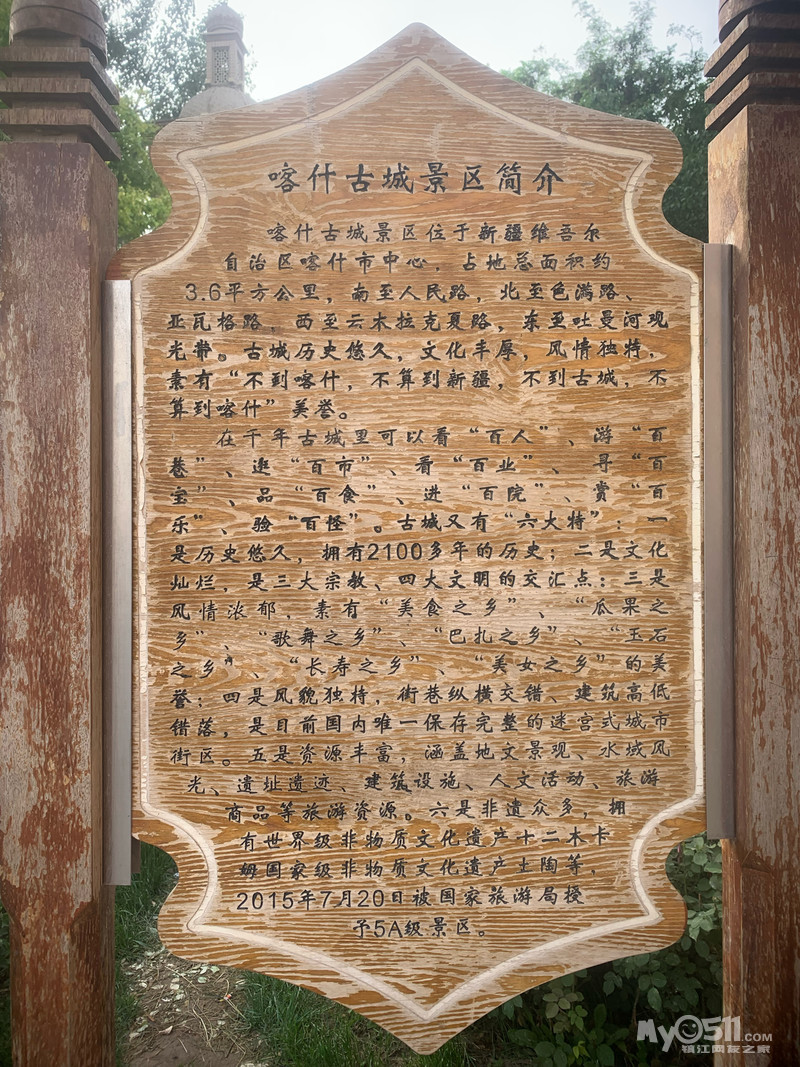 喀什古城景区简介
喀什古城景区位于新疆维吾尔
自治区喀什市中心，占地总面积约
3.6平方公里，南至人民路，北至色满路、
亚瓦格路，西至云木拉克夏路，东至吐曼河观
光带。古城历史悠久，文化丰厚，风情独特，
素有“不到喀什，不算到新疆，不到古城，不
算到喀什”美誉。
在千年古城里可以看“百人”、游“百
巷”、逛“百市”、看“百业”、寻“百
宝”、品“百食”、进“百院”、赏“百
乐”、验“百怪”。古城又有“六大特”：一
是历史悠久，拥有2100多年的历史；二是文化
灿烂，是三大宗教、四大文明的交汇点；三是
风情浓郁，素有“美食之乡”、“瓜果之
乡”、“歌舞之乡”、“巴扎之乡”、“玉石
之乡”、“长寿之乡”、“美女之乡”的美
誉；四是风貌独特，街巷纵横交错、建筑高低
错落，是目前国内唯一保存完整的迷宫式城市
街区。五是资源丰富，涵盖地文景观、水域风
光、遗址遗迹、建筑设施、人文活动、旅游
商品等旅游资源。六是非遗众多，拥
有世界级非物质文化遗产十二木卡
姆国家级非物质文化遗产土陶等，
2015年7月20日被国家旅游局授
予5A级景区。
My0511.COM
镇江网友之家